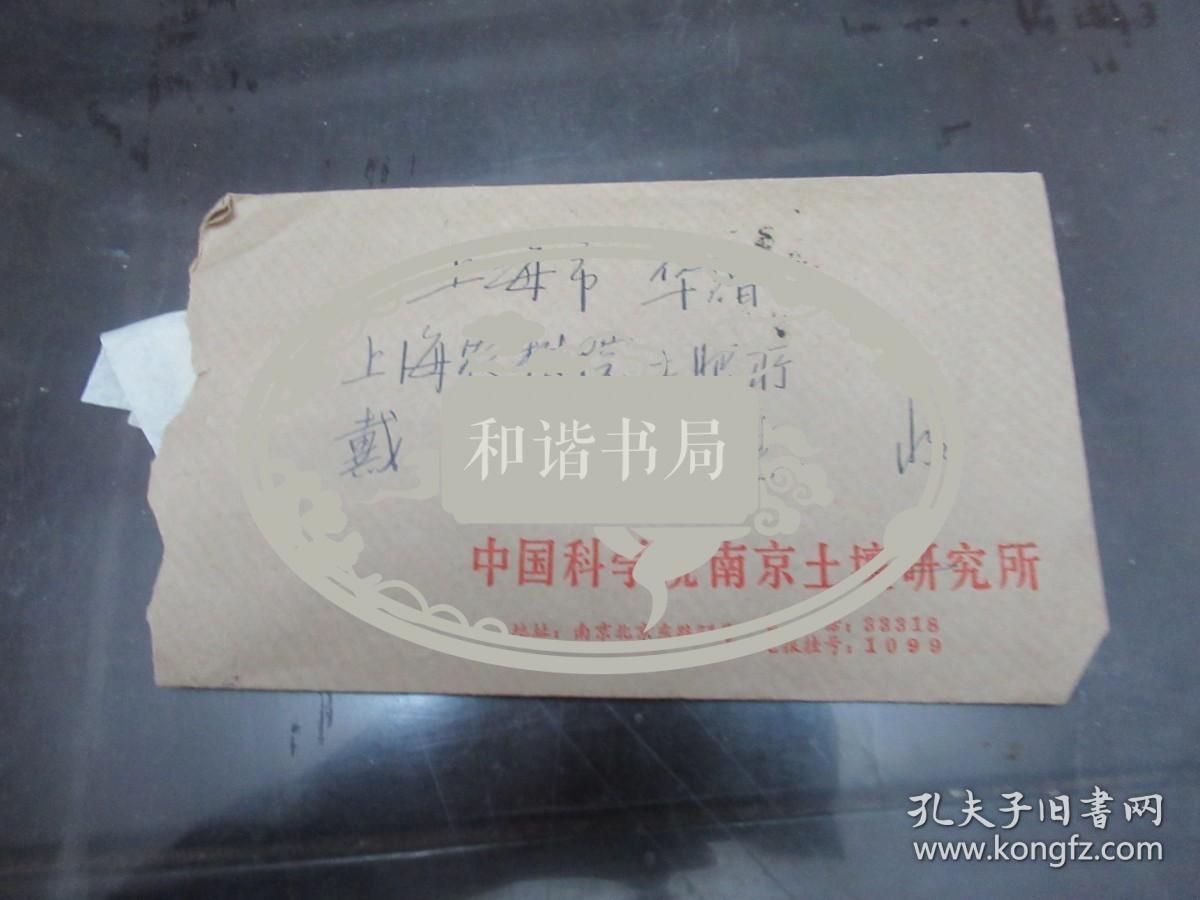 上海市 华漕
上海农科院土肥所
戴 收
和谐书局
中国科学院南京土壤研究所
地址：南京北京东路71号 电 话：33318
电报挂号：1099
孔夫子旧书网
www.kongfz.com